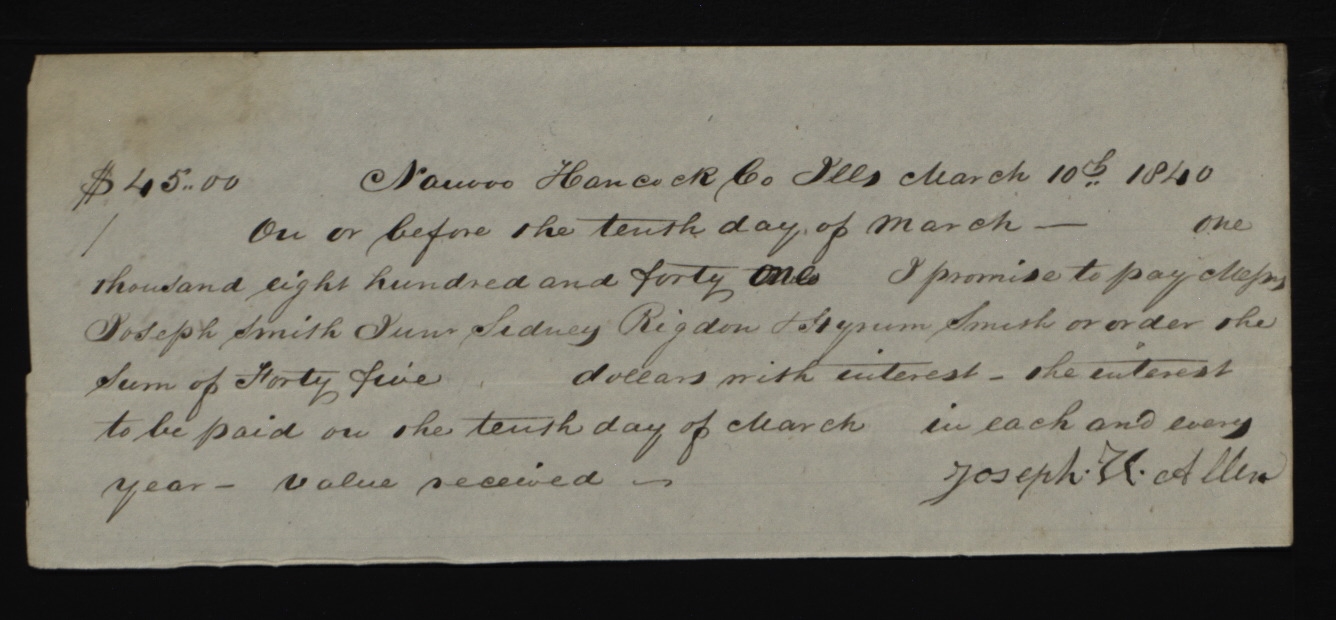 $45..00 Nauvoo Hancock Co Ills March 10th 1840
/ On or before the tenth day of March — one
thousand eight hundred and forty one I promise to pay Messrs
Joseph Smith Junr Sidney Rigdon & Hyrum Smith or order the
Sum of Forty five dollars with interest - the interest
to be paid on the tenth day of March in each and every
year - value received —
Joseph. H. Allen